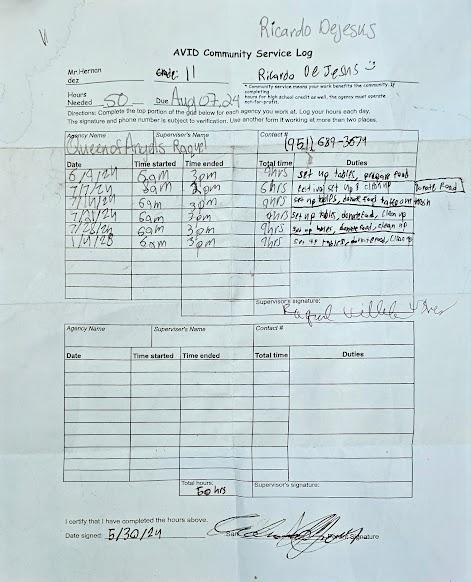 Ricardo DeJesus
AVID Community Service Log
Mr.Hernan
dez
Grade: 11
Ricardo DeJesus
Hours
Needed 50 Due Aug 07, 24
* Community service means your work benefits the community. If
completing
hours for high school credit as well, the agency must operate
not-for-profit.
Directions: Complete the top portion of the grid below for each agency you work at. Log your hours each day.
The signature and phone number is subject to verification. Use another form if working at more than two places.
Agency Name Supervisor's Name Contact #
Queen of Angels Raquel (951) 689-3674
Date Time started Time ended Total time Duties
6/4/24 6am 3pm 9hrs set up tables, prepare food
7/7/24 3pm 6hrs set up & clean up donate food
7/14/24 6am 3pm 9hrs set up tables, donate food take out trash
7/21/24 6am 3pm 9hrs set up tables, donate food, clean up
7/28/24 6am 3pm 9hrs set up tables, donate food, clean up
6am 3pm 9hrs set up tables, donate food, clean up
Supervisor's signature:
Agency Name Supervisor's Name Contact #
Date Time started Time ended Total time Duties
Total hours:
50 hrs
Supervisor's signature:
I certify that I have completed the hours above.
Date signed: 5/30/24